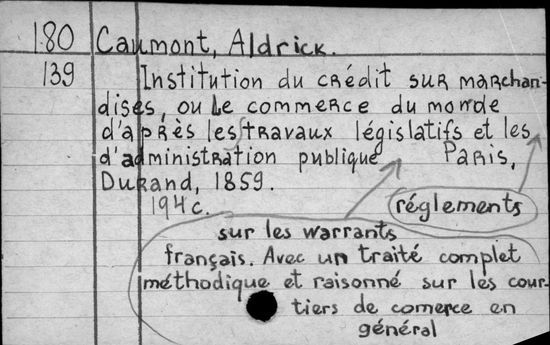 180 Caumont, Aldrick.
139 Institution du crédit sur marchan-
dises, ou le commerce du monde
d'après les travaux législatifs et les
d'administration publique Paris,
Durand, 1859.
194c. réglements
sur les warrants
français. Avec un traité complet
méthodique et raisonné sur les cour-
tiers de comerce en
général